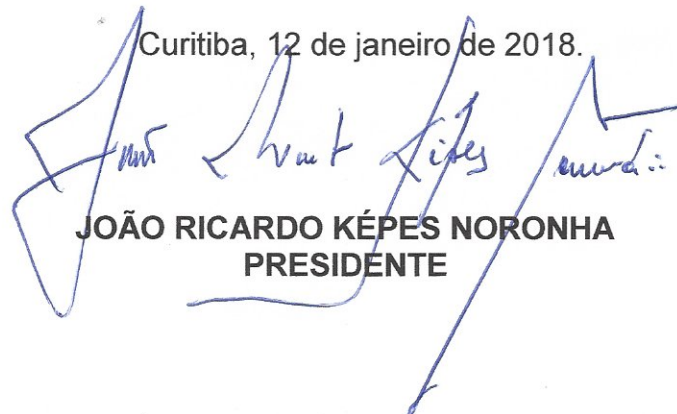 Curitiba, 12 de janeiro de 2018.
JOÃO RICARDO KÉPES NORONHA
PRESIDENTE